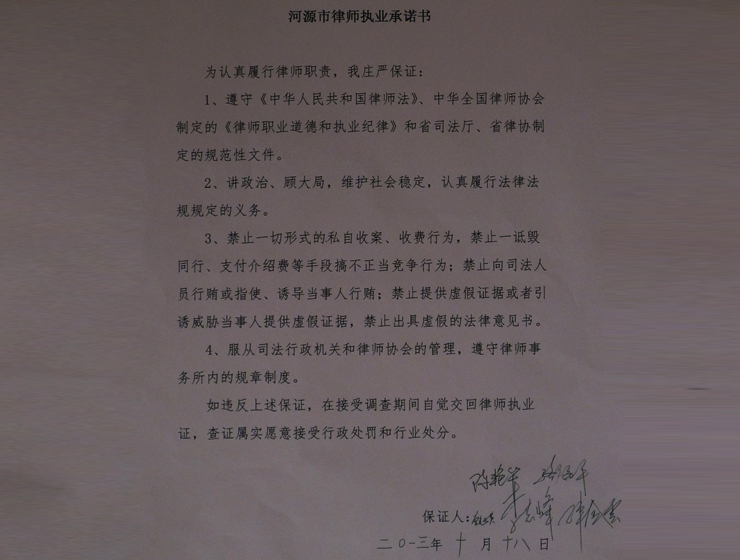 河源市律师执业承诺书
为认真履行律师职责，我庄严保证：
1、遵守《中华人民共和国律师法》、中华全国律师协会
制定的《律师职业道德和执业纪律》和省司法厅、省律协制
定的规范性文件。
2、讲政治、顾大局，维护社会稳定，认真履行法律法
规规定的义务。
3、禁止一切形式的私自收案、收费行为，禁止一诋毁
同行、支付介绍费等手段搞不正当竞争行为；禁止向司法人
员行贿或指使、诱导当事人行贿；禁止提供虚假证据或者引
诱威胁当事人提供虚假证据，禁止出具虚假的法律意见书。
4、服从司法行政机关和律师协会的管理，遵守律师事
务所内的规章制度。
如违反上述保证，在接受调查期间自觉交回律师执业
证，查证属实愿意接受行政处罚和行业处分。
保证人：
二0一三年十月十八日